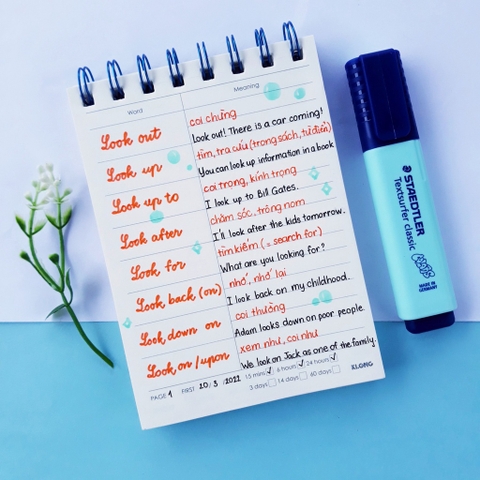 Word Meaning
Look out
coi chừng
Look out! There is a car coming!
Look up
tìm, tra cứu (trong sách, từ điển)
You can look up information in a book
Look up to
coi trọng, kính trọng
I look up to Bill Gates.
Look after
chăm sóc, trông nom
I'll look after the kids tomorrow.
Look for
tìm kiếm (= search for)
What are you looking for?
Look back (on)
nhớ, nhớ lại
I look back on my childhood.
Look down on
coi thường
Adam looks down on poor people.
Look on / upon
xem như, coi như
We look on Jack as one of the family.
PAGE 1 FIRST 20/3/2022 15 mins ✓ 6 hours ✓ 24 hours ✓
3 days 14 days 60 days
KLONG
STAEDTLER
Textsurfer classic
MADE IN
GERMANY